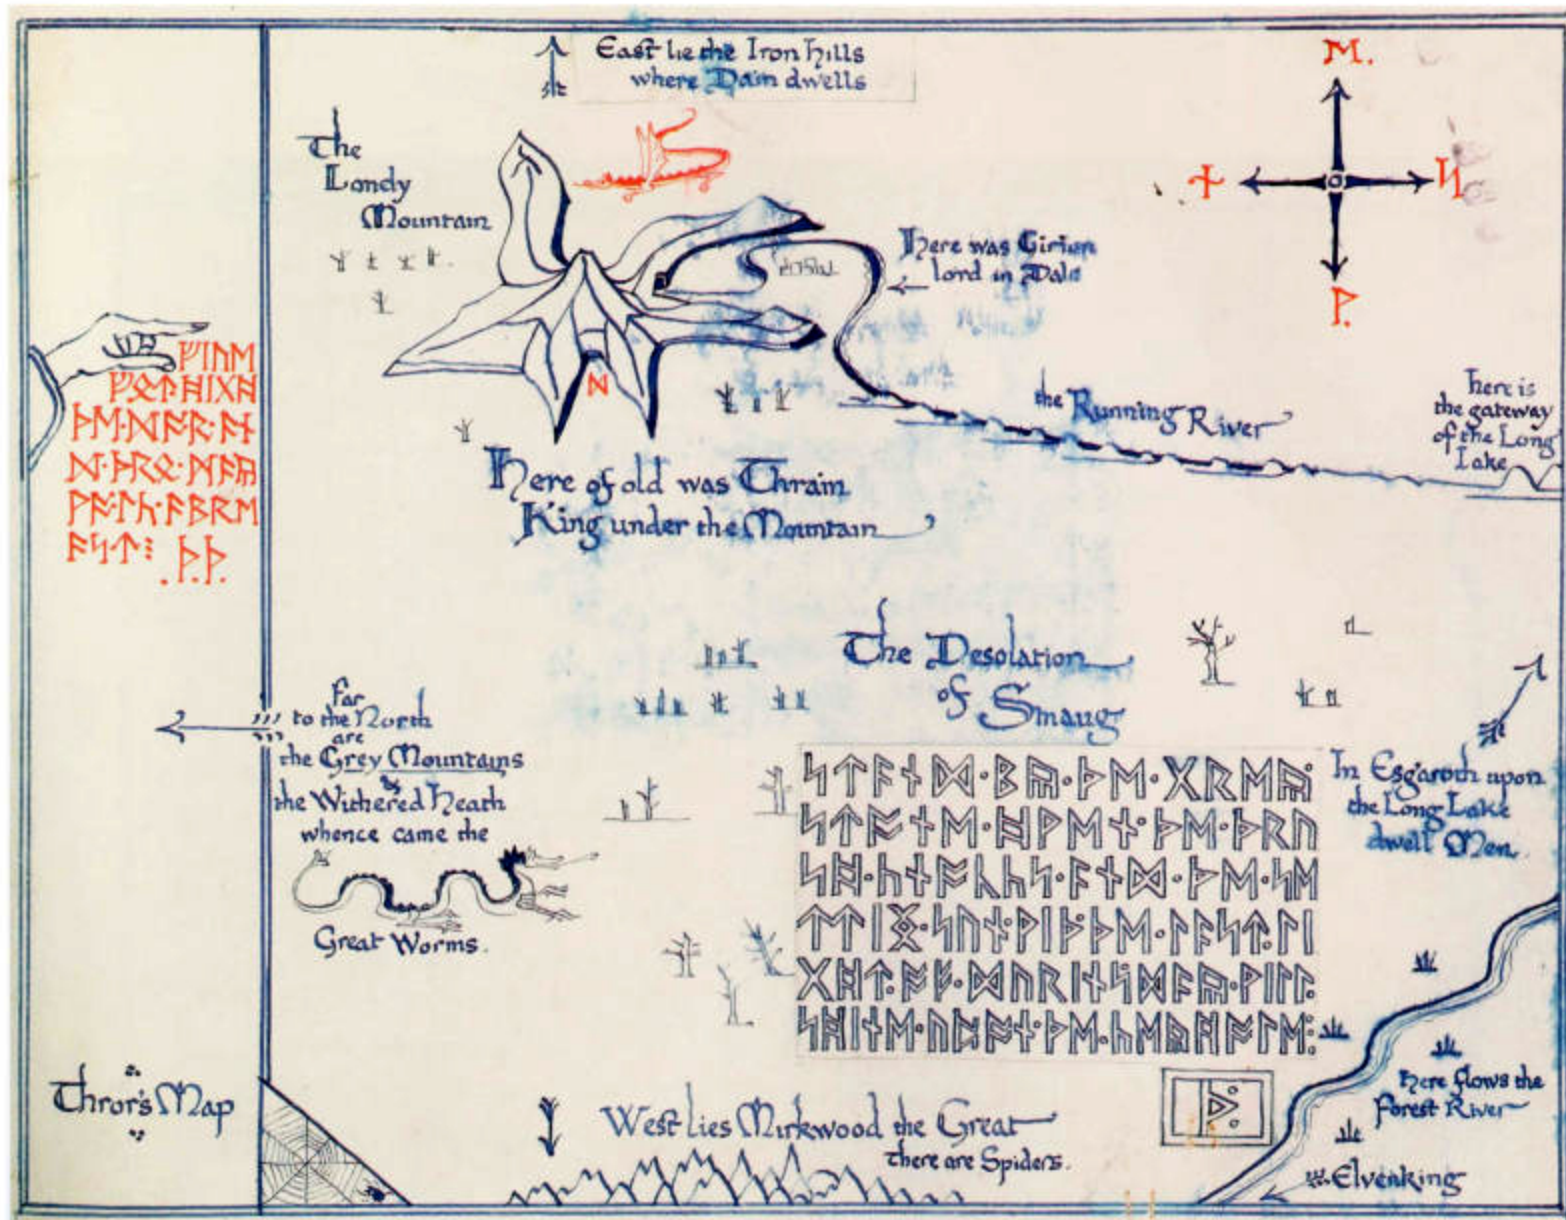 East lie the Iron Hills
where Dain dwells
ᛖ.
ᚾ
ᛋ
ᚹ.
The
Lonely
Mountain
Here was Girion
lord in Dale
ᚠᛁᚢᛖ
ᚠᚩᛏ·ᚻᛁᚷᚻ
ᚦᛖ·ᛞᚩᚱ·ᚫᚾ
ᛞ·ᚦᚱᛟ·ᛗᚫᚣ
ᚹᚩᛚᚳ·ᚫᛒᚱᛖ
ᚫᛋᛏ⁝
.ᚦ.ᚦ.
ᛞ
the Running River
here is
the gateway
of the Long
Lake
Here of old was Thrain
King under the Mountain
The Desolation
of Smaug
Far
to the North
are
the Grey Mountains
&
the Withered Heath
whence came the
Great Worms.
ᛋᛏᚫᚾᛞ·ᛒᚣ·ᚦᛖ·ᚷᚱᛖᚣ·
ᛋᛏᚩᚾᛖ·ᚻᚹᛖᚾ·ᚦᛖ·ᚦᚱᚢ
ᛋᚻ·ᚳᚾᚩᚳᚳᛋ·ᚫᚾᛞ·ᚦᛖ·ᛋᛖ
ᛏᛏᛁᛝ·ᛋᚢᚾ·ᚹᛁᚦ·ᚦᛖ·ᛚᚫᛋᛏ·ᛚᛁ
ᚷᚻᛏ·ᚩᚠ·ᛞᚢᚱᛁᚾᛋ·ᛞᚫᚣ·ᚹᛁᛚᛚ·
ᛋᚻᛁᚾᛖ·ᚢᛈᚩᚾ·ᚦᛖ·ᚳᛖᚣᚻᚩᛚᛖ:
In Esgaroth upon
the Long Lake
dwell Men.
Here flows the
Forest River
Elvenking
ᚦ
Thror's Map
West lies Mirkwood the Great
there are Spiders.